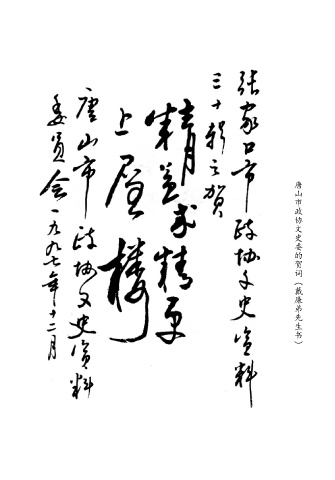 张家口市政协文史资料
三十辑之贺
精益求精更
上层楼
唐山市政协文史资料
委员会一九九七年十二月
唐山市政协文史委的贺词（戴廉弟先生书）